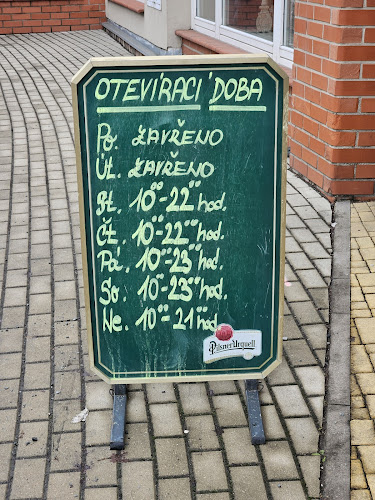 OTEVÍRACÍ DOBA
Po. ZAVŘENO
Út. ZAVŘENO
St. 10⁰⁰-22⁰⁰ hod.
Čt. 10⁰⁰-22⁰⁰ hod.
Pá. 10⁰⁰-23⁰⁰ hod.
So. 10⁰⁰-23⁰⁰ hod.
Ne. 10⁰⁰-21⁰⁰ hod.
Pilsner Urquell